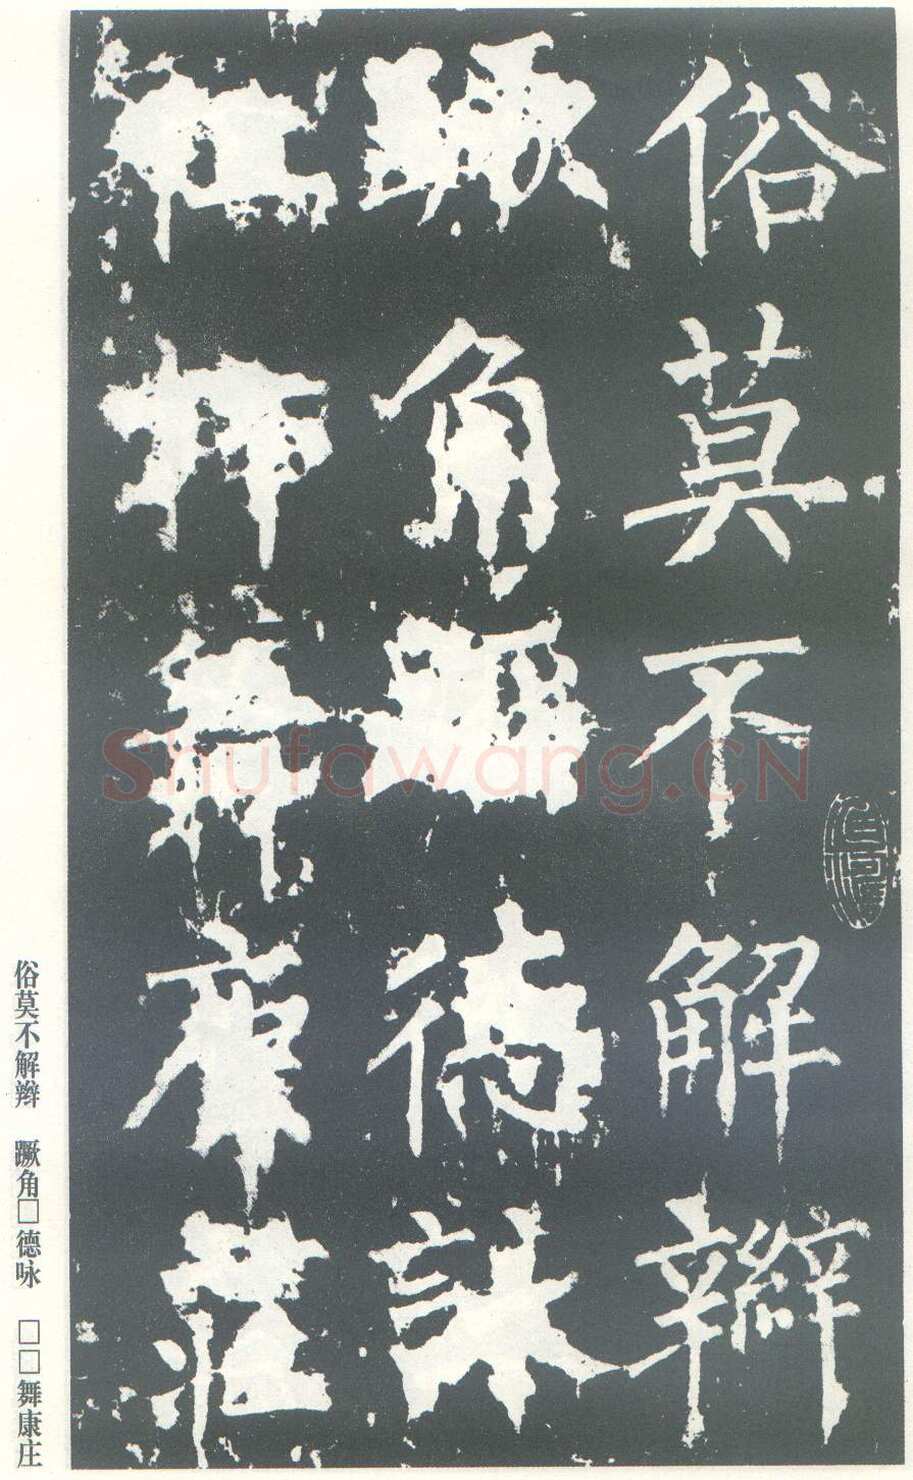 俗莫不解辮
蹶角德詠
抃舞康莊
俗莫不解辫 蹶角□德咏 □□舞康庄
Shufawang.CN